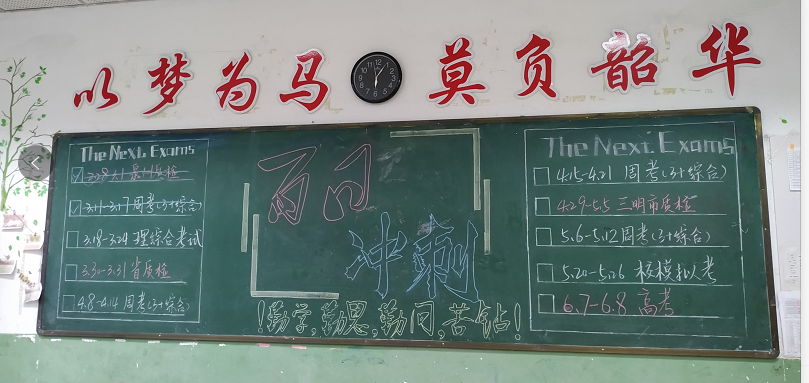 以梦为马 莫负韶华
The Next Exams
3.11-3.17周考(3+综合)
3.18-3.24 理综合考试
3.30-3.31 省质检
4.8-4.14 周考(3+综合)
百日
冲刺
!勤学,勤思,勤问,苦钻!
The Next Exams
4.15-4.21 周考(3+综合)
4.29-5.5 三明市质检
5.6-5.12周考(3+综合)
5.20-5.26 校模拟考
6.7-6.8 高考